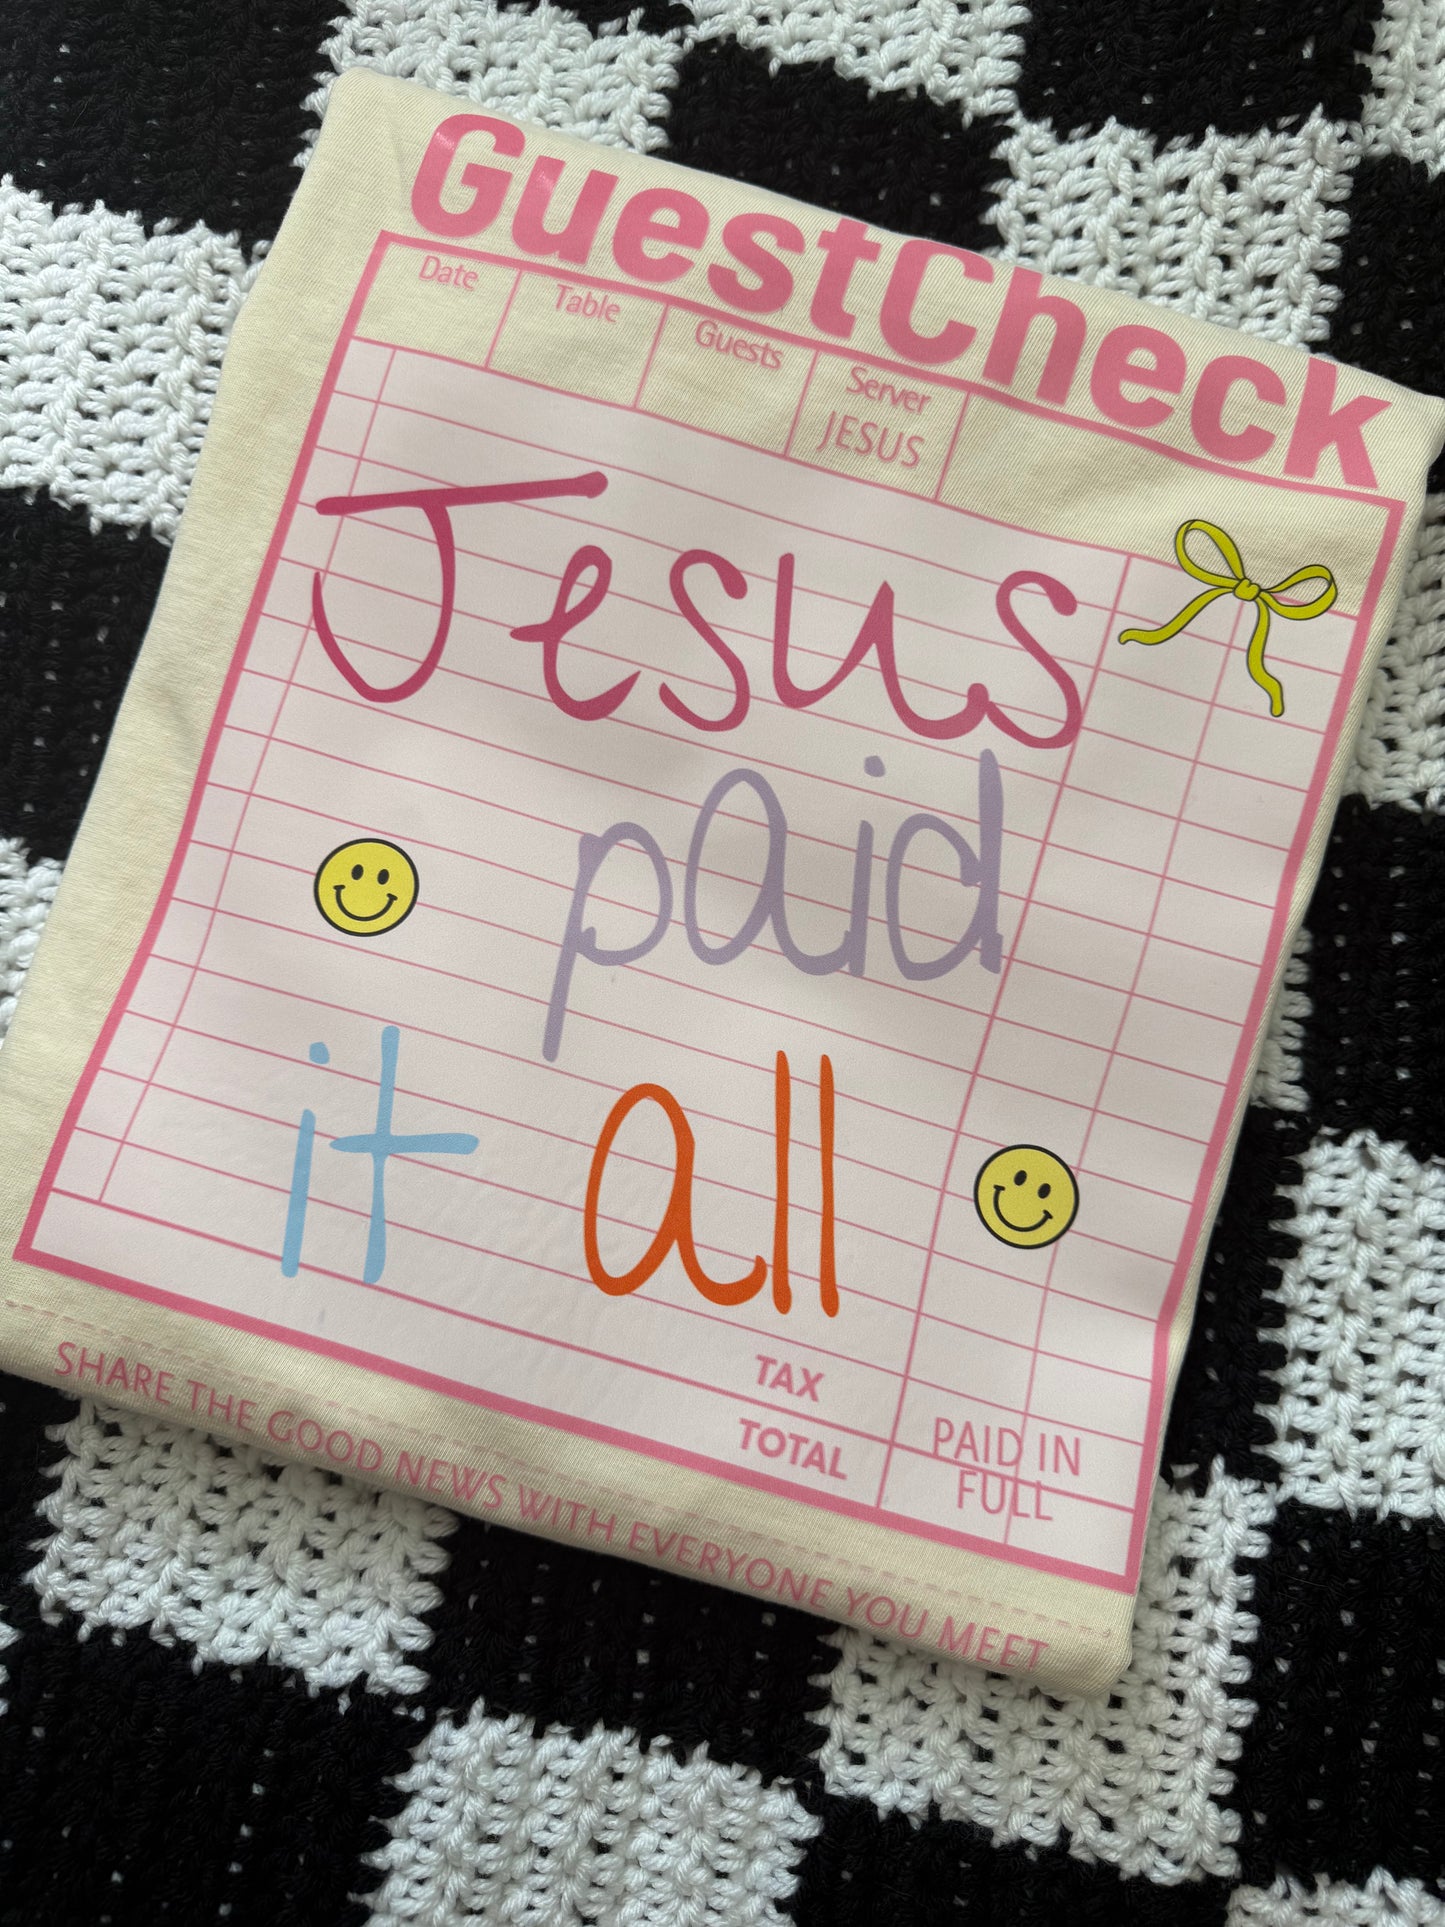 GuestCheck
Date Table Guests Server
JESUS
Jesus
paid
it all
TAX
TOTAL PAID IN
FULL
SHARE THE GOOD NEWS WITH EVERYONE YOU MEET